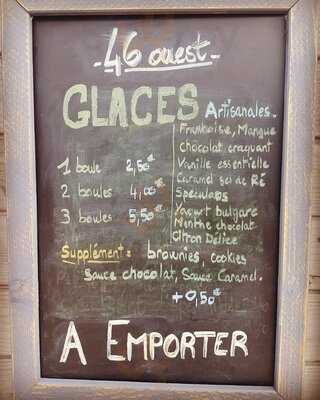 46 ouest
GLACES Artisanales
Framboise, Mangue
chocolat craquant
Vanille essentielle
Caramel sel de Ré
Speculoos
Yaourt bulgare
Menthe chocolat
Citron Délice
1 boule 2,50€
2 boules 4,00€
3 boules 5,50€
Supplément : brownies, cookies
Sauce chocolat, Sauce Caramel.
+0,50€
A EMPORTER